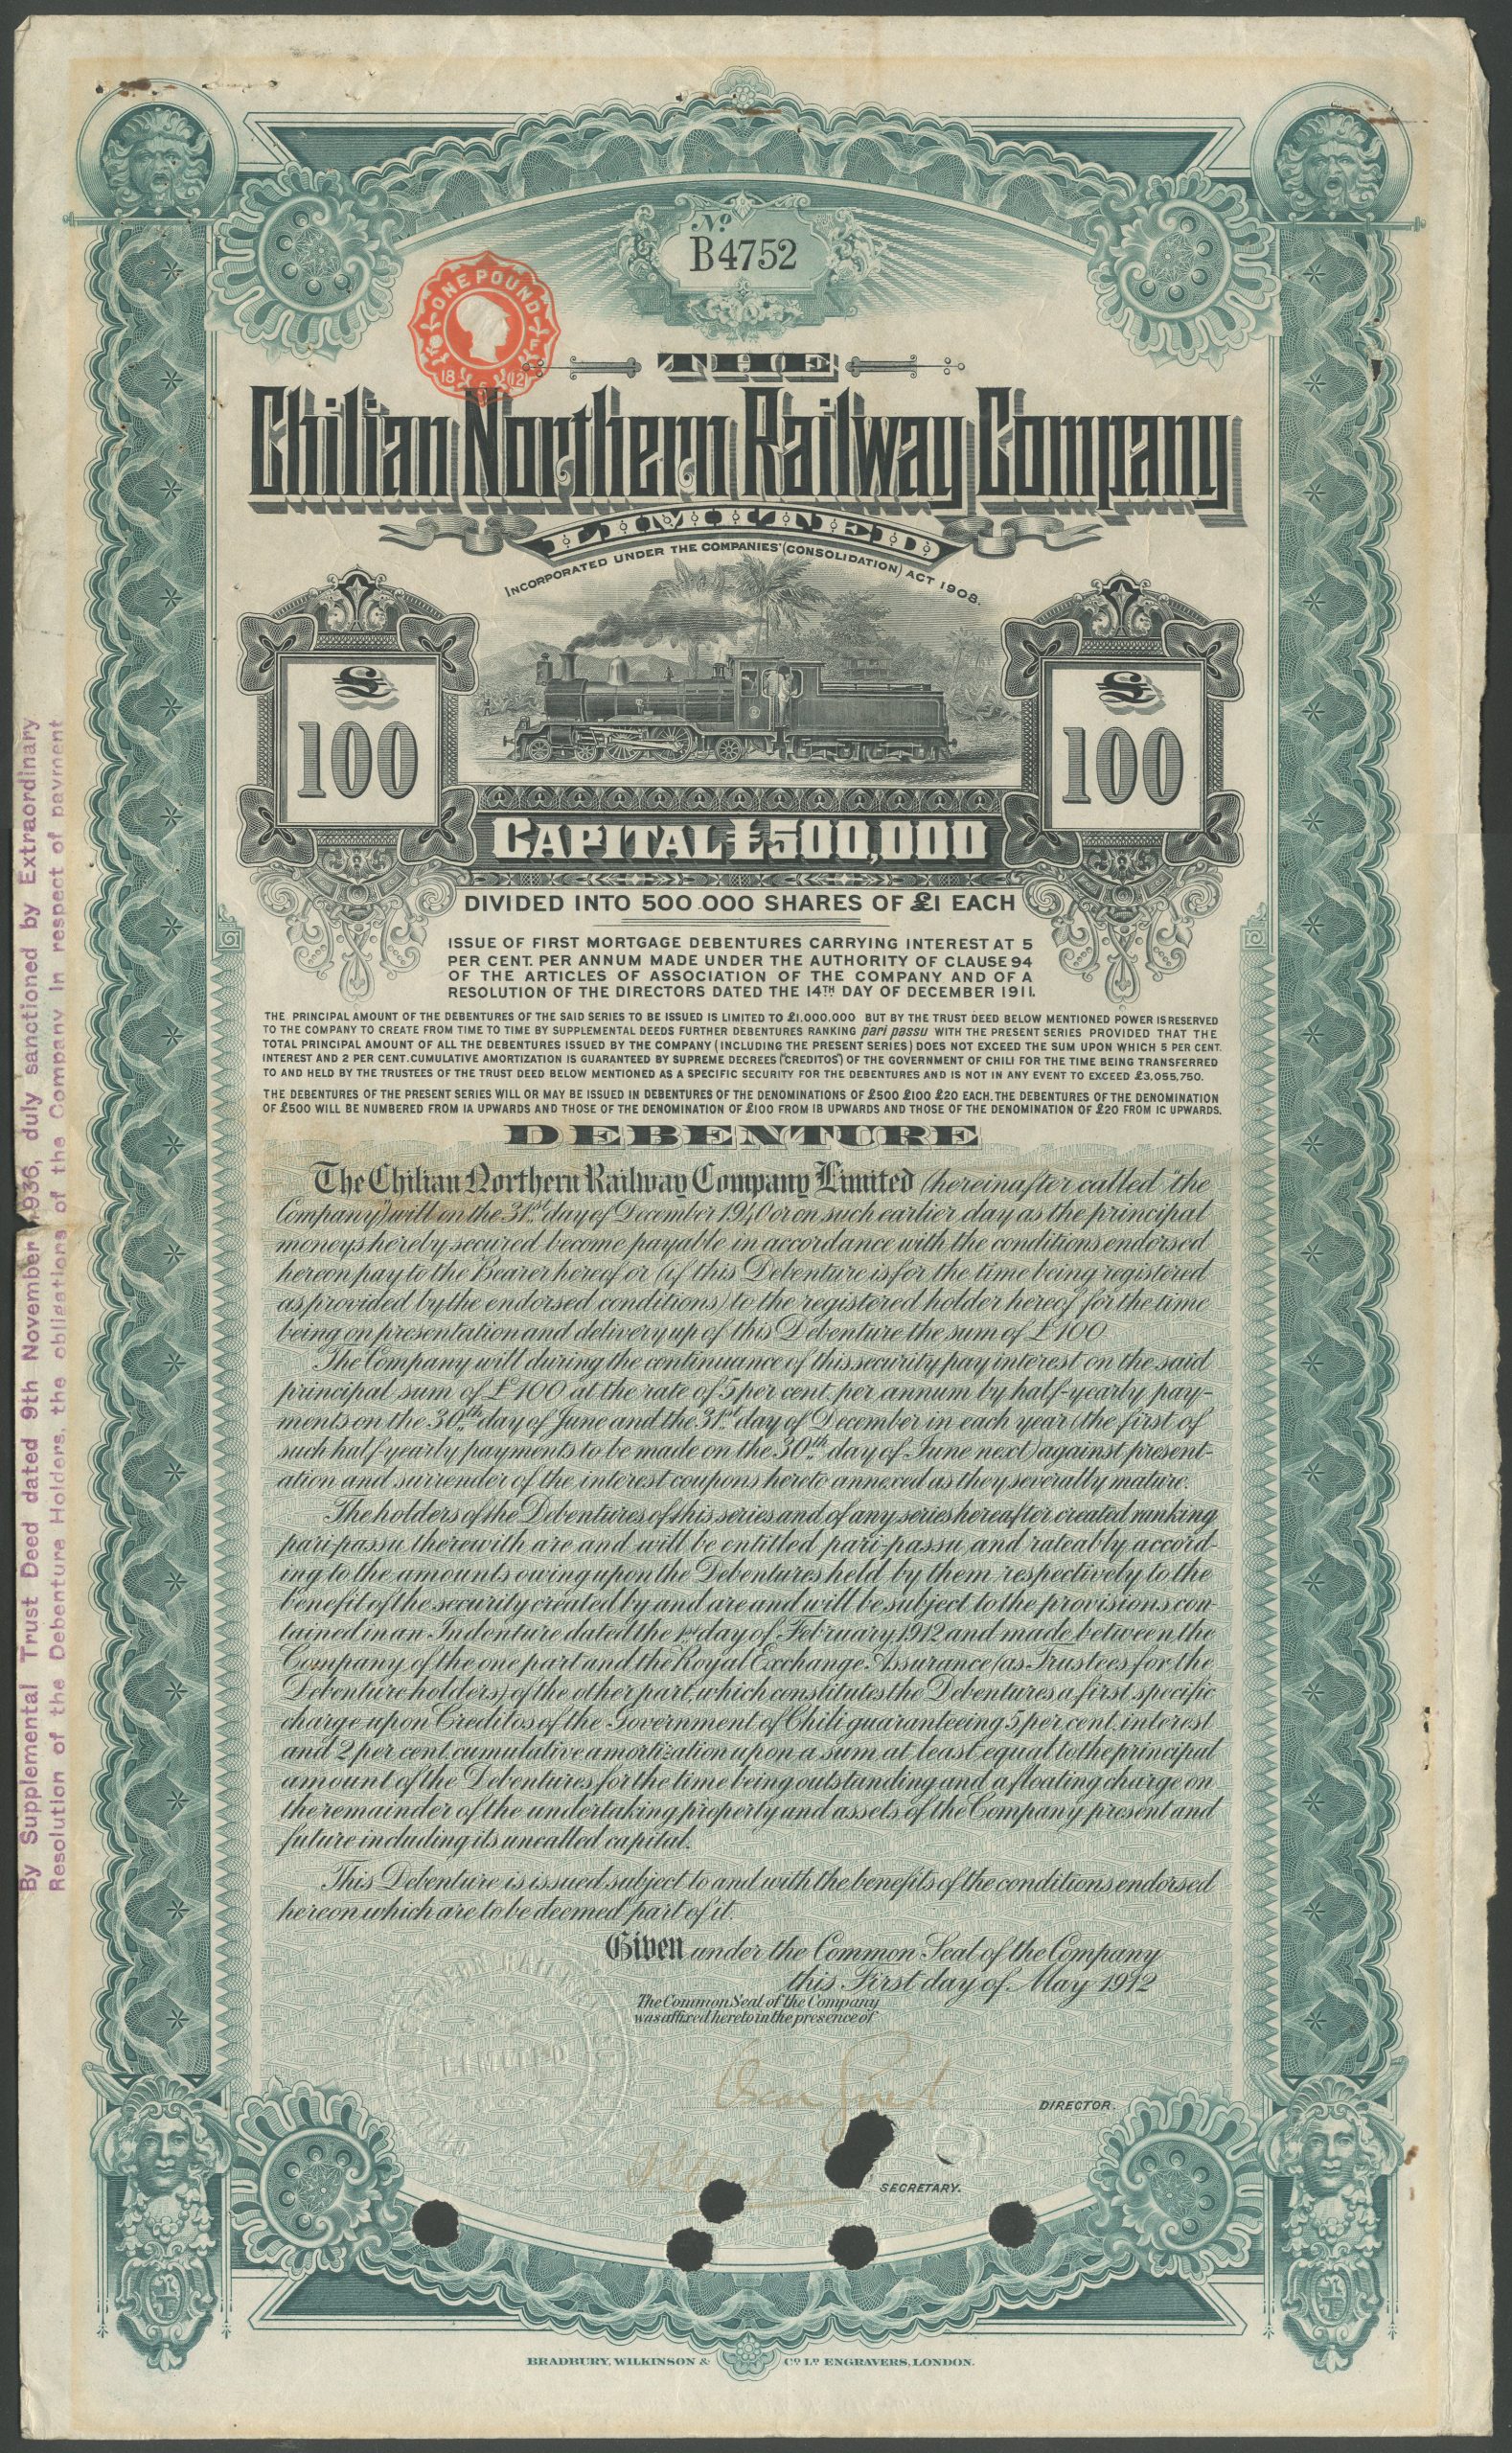 No.
B4752
ONE POUND
18 5 12
THE
Chilian Northern Railway Company
LIMITED
INCORPORATED UNDER THE COMPANIES' (CONSOLIDATION) ACT 1908.
£
100
£
100
CAPITAL £500,000
DIVIDED INTO 500.000 SHARES OF £1 EACH
ISSUE OF FIRST MORTGAGE DEBENTURES CARRYING INTEREST AT 5
PER CENT. PER ANNUM MADE UNDER THE AUTHORITY OF CLAUSE 94
OF THE ARTICLES OF ASSOCIATION OF THE COMPANY AND OF A
RESOLUTION OF THE DIRECTORS DATED THE 14TH DAY OF DECEMBER 1911.
THE PRINCIPAL AMOUNT OF THE DEBENTURES OF THE SAID SERIES TO BE ISSUED IS LIMITED TO £1.000.000 BUT BY THE TRUST DEED BELOW MENTIONED POWER IS RESERVED
TO THE COMPANY TO CREATE FROM TIME TO TIME BY SUPPLEMENTAL DEEDS FURTHER DEBENTURES RANKING pari passu WITH THE PRESENT SERIES PROVIDED THAT THE
TOTAL PRINCIPAL AMOUNT OF ALL THE DEBENTURES ISSUED BY THE COMPANY (INCLUDING THE PRESENT SERIES) DOES NOT EXCEED THE SUM UPON WHICH 5 PER CENT.
INTEREST AND 2 PER CENT. CUMULATIVE AMORTIZATION IS GUARANTEED BY SUPREME DECREES ("CREDITOS") OF THE GOVERNMENT OF CHILI FOR THE TIME BEING TRANSFERRED
TO AND HELD BY THE TRUSTEES OF THE TRUST DEED BELOW MENTIONED AS A SPECIFIC SECURITY FOR THE DEBENTURES AND IS NOT IN ANY EVENT TO EXCEED £3,055,750.
THE DEBENTURES OF THE PRESENT SERIES WILL OR MAY BE ISSUED IN DEBENTURES OF THE DENOMINATIONS OF £500 £100 £20 EACH. THE DEBENTURES OF THE DENOMINATION
OF £500 WILL BE NUMBERED FROM 1A UPWARDS AND THOSE OF THE DENOMINATION OF £100 FROM 1B UPWARDS AND THOSE OF THE DENOMINATION OF £20 FROM 1C UPWARDS.
DEBENTURE
The Chilian Northern Railway Company Limited (hereinafter called "the
Company") will on the 31st day of December 1940 or on such earlier day as the principal
moneys hereby secured become payable in accordance with the conditions endorsed
hereon pay to the Bearer hereof or (if this Debenture is for the time being registered
as provided by the endorsed conditions) to the registered holder hereof for the time
being on presentation and delivery up of this Debenture the sum of £100
The Company will during the continuance of this security pay interest on the said
principal sum of £100 at the rate of 5 per cent. per annum by half-yearly pay-
ments on the 30th day of June and the 31st day of December in each year (the first of
such half-yearly payments to be made on the 30th day of June next) against present-
ation and surrender of the interest coupons hereto annexed as they severally mature.
The holders of the Debentures of this series and of any series hereafter created ranking
pari-passu therewith are and will be entitled pari-passu and rateably accord-
ing to the amounts owing upon the Debentures held by them respectively to the
benefit of the security created by and are and will be subject to the provisions con-
tained in an Indenture dated the 1st day of February 1912 and made between the
Company of the one part and the Royal Exchange Assurance (as Trustees for the
Debenture holders) of the other part, which constitutes the Debentures a first specific
charge upon Creditos of the Government of Chili guaranteeing 5 per cent. interest
and 2 per cent. cumulative amortization upon a sum at least equal to the principal
amount of the Debentures for the time being outstanding and a floating charge on
the remainder of the undertaking property and assets of the Company present and
future including its uncalled capital.
This Debenture is issued subject to and with the benefits of the conditions endorsed
hereon which are to be deemed part of it.
Given under the Common Seal of the Company
this First day of May 1912
The Common Seal of the Company
was affixed hereto in the presence of
DIRECTOR.
SECRETARY.
LIMITED
BRADBURY, WILKINSON & Co. Ld. ENGRAVERS, LONDON.
By Supplemental Trust Deed dated 9th November 1936, duly sanctioned by Extraordinary
Resolution of the Debenture Holders, the obligations of the Company in respect of payment